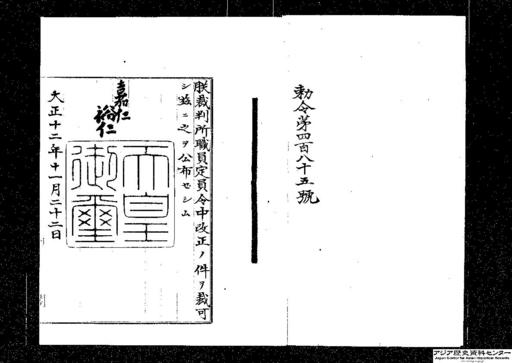 勅令第四百八十五號
朕裁判所職員定員令中改正ノ件ヲ裁可
シ茲ニ之ヲ公布セシム
嘉仁
裕仁
天皇
御璽
大正十二年十一月二十二日
アジア歴史資料センター
Japan Center for Asian Historical Records